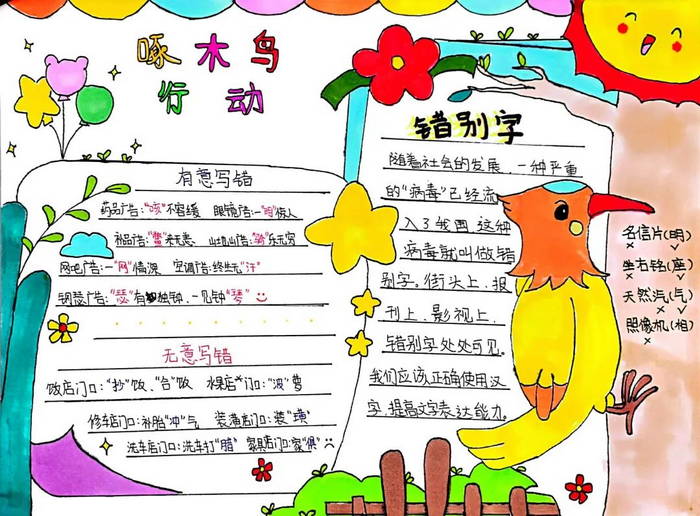 啄木鸟
行动
有意写错
药品广告:"咳"不容缓 眼镜广告:一"明"惊人
补品广告:"鳖"来无恙 山地山广告:"骑"乐无穷
网吧广告:一"网"情深 空调广告:终生无"汗"
钢瑟广告:"瑟"有独钟,一见钟"琴"
无意写错
饭店门口:"抄"饭、"合"饭 水果店门口:"波"萝
修车店门口:补胎"冲"气 装潢店门口:装"璜"
洗车店门口:洗车打"腊" 家具店门口:家"俱"
错别字
随着社会的发展,一种严重
的"病毒"已经流
入了我国,这种
病毒就叫做错
别字。街头上,报
刊上,影视上,
错别字处处可见。
我们应该正确使用汉
字,提高文字表达能力。
名信片(明)
坐右铭(座)
天然汽(气)
照像机(相)